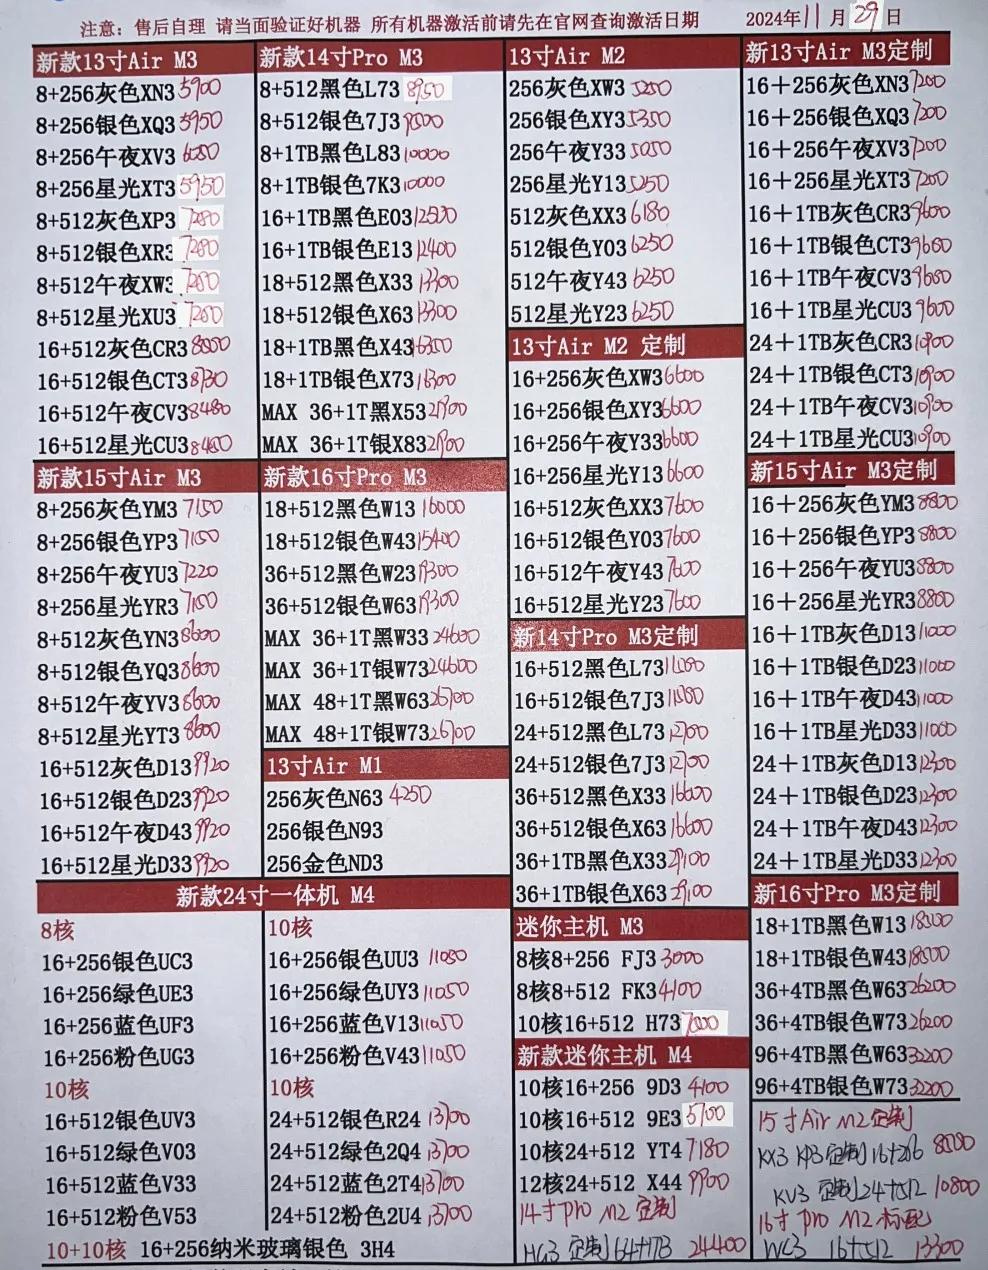 注意：售后自理 请当面验证好机器 所有机器激活前请先在官网查询激活日期 2024年11月29日
新款13寸Air M3
8+256灰色XN3 5900
8+256银色XQ3 5950
8+256午夜XV3 6050
8+256星光XT3 5950
8+512灰色XP3 7280
8+512银色XR3 7280
8+512午夜XW3 7280
8+512星光XU3 7280
16+512灰色CR3
16+512银色CT3 8730
16+512午夜CV3 8480
16+512星光CU3 8480
新款15寸Air M3
8+256灰色YM3 7150
8+256银色YP3 7150
8+256午夜YU3 7220
8+256星光YR3 7150
8+512灰色YN3 8600
8+512银色YQ3 8600
8+512午夜YV3 8600
8+512星光YT3 8600
16+512灰色D13 9920
16+512银色D23 9920
16+512午夜D43 9920
16+512星光D33 9920
新款14寸Pro M3
8+512黑色L73 8950
8+512银色7J3 9500
8+1TB黑色L83 10000
8+1TB银色7K3 10000
16+1TB黑色E03
16+1TB银色E13 12400
18+512黑色X33 13300
18+512银色X63 13300
18+1TB黑色X43
18+1TB银色X73 16300
MAX 36+1T黑X53 21900
MAX 36+1T银X83 21900
新款16寸Pro M3
18+512黑色W13 16000
18+512银色W43 15400
36+512黑色W23 19300
36+512银色W63 19300
MAX 36+1T黑W33 24600
MAX 36+1T银W73 24600
MAX 48+1T黑W63 26700
MAX 48+1T银W73 26700
13寸Air M1
256灰色N63 4250
256银色N93
256金色ND3
新款24寸一体机 M4
8核
16+256银色UC3
16+256绿色UE3
16+256蓝色UF3
16+256粉色UG3
10核
16+512银色UV3
16+512绿色V03
16+512蓝色V33
16+512粉色V53
10核
16+256银色UU3 11050
16+256绿色UY3 11050
16+256蓝色V13 11050
16+256粉色V43 11050
10核
24+512银色R24 13700
24+512绿色2Q4 13700
24+512蓝色2T4 13700
24+512粉色2U4 13700
10+10核 16+256纳米玻璃银色 3H4
13寸Air M2
256灰色XW3 5250
256银色XY3 5350
256午夜Y33 5050
256星光Y13 5250
512灰色XX3 6180
512银色Y03 6250
512午夜Y43 6250
512星光Y23 6250
13寸Air M2 定制
16+256灰色XW3 6600
16+256银色XY3 6600
16+256午夜Y33 6600
16+256星光Y13 6600
16+512灰色XX3 7600
16+512银色Y03 7600
16+512午夜Y43 7600
16+512星光Y23 7600
新14寸Pro M3定制
16+512黑色L73
16+512银色7J3
24+512黑色L73 12700
24+512银色7J3 12700
36+512黑色X33 16600
36+512银色X63 16600
36+1TB黑色X33 21100
36+1TB银色X63 21100
迷你主机 M3
8核8+256 FJ3 3000
8核8+512 FK3 4100
10核16+512 H73 7000
新款迷你主机 M4
10核16+256 9D3 4100
10核16+512 9E3 5700
10核24+512 YT4 7180
12核24+512 X44 9900
14寸pro M2 定制
MG3 定制64+1TB 24400
新13寸Air M3定制
16+256灰色XN3 7200
16+256银色XQ3 7200
16+256午夜XV3 7200
16+256星光XT3 7200
16+1TB灰色CR3 9600
16+1TB银色CT3 9600
16+1TB午夜CV3 9600
16+1TB星光CU3 9600
24+1TB灰色CR3 10900
24+1TB银色CT3 10900
24+1TB午夜CV3 10900
24+1TB星光CU3 10900
新15寸Air M3定制
16+256灰色YM3 8800
16+256银色YP3 8800
16+256午夜YU3 8800
16+256星光YR3 8800
16+1TB灰色D13 11000
16+1TB银色D23 11000
16+1TB午夜D43 11000
16+1TB星光D33 11000
24+1TB灰色D13 12300
24+1TB银色D23 12300
24+1TB午夜D43 12300
24+1TB星光D33 12300
新16寸Pro M3定制
18+1TB黑色W13 18500
18+1TB银色W43 18500
36+4TB黑色W63 26200
36+4TB银色W73 26200
96+4TB黑色W63 32200
96+4TB银色W73 32200
15寸Air M2定制
KX3 KP3 定制16+256
KV3 定制24+512 10800
16寸pro M2标配
WC3 16+512 13300